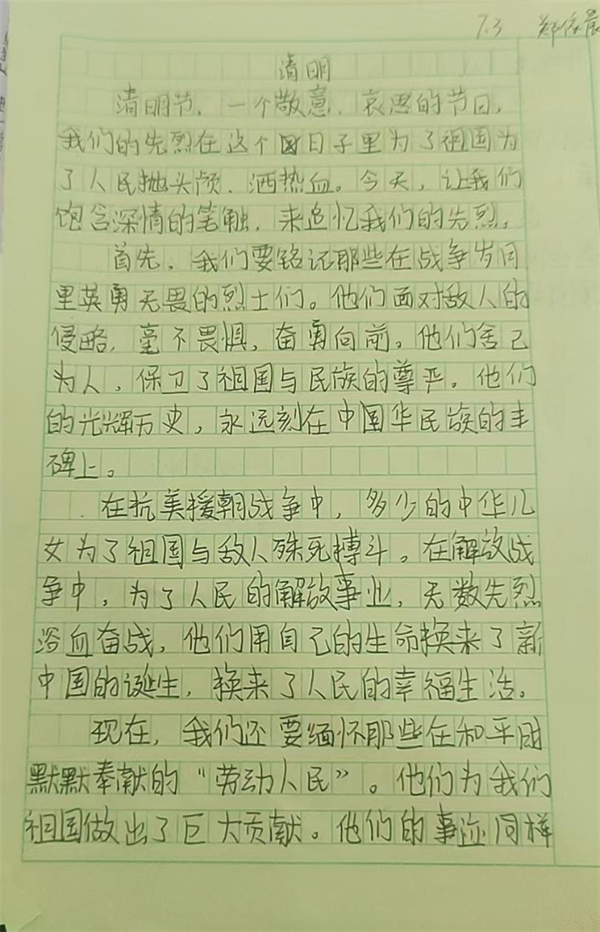 7.3 郑
清明
清明节，一个敬意、哀思的节日，
我们的先烈在这个日子里为了祖国为
了人民抛头颅、洒热血。今天，让我们
饱含深情的笔触，来追忆我们的先烈。
首先，我们要铭记那些在战争岁月
里英勇无畏的烈士们。他们面对敌人的
侵略，毫不畏惧，奋勇向前。他们舍己
为人，保卫了祖国与民族的尊严。他们
的光辉历史，永远刻在中国华民族的丰
碑上。
在抗美援朝战争中，多少的中华儿
女为了祖国与敌人殊死搏斗。在解放战
争中，为了人民的解放事业，无数先烈
浴血奋战，他们用自己的生命换来了新
中国的诞生，换来了人民的幸福生活。
现在，我们还要缅怀那些在和平时
默默奉献的“劳动人民”。他们为我们
祖国做出了巨大贡献。他们的事迹同样